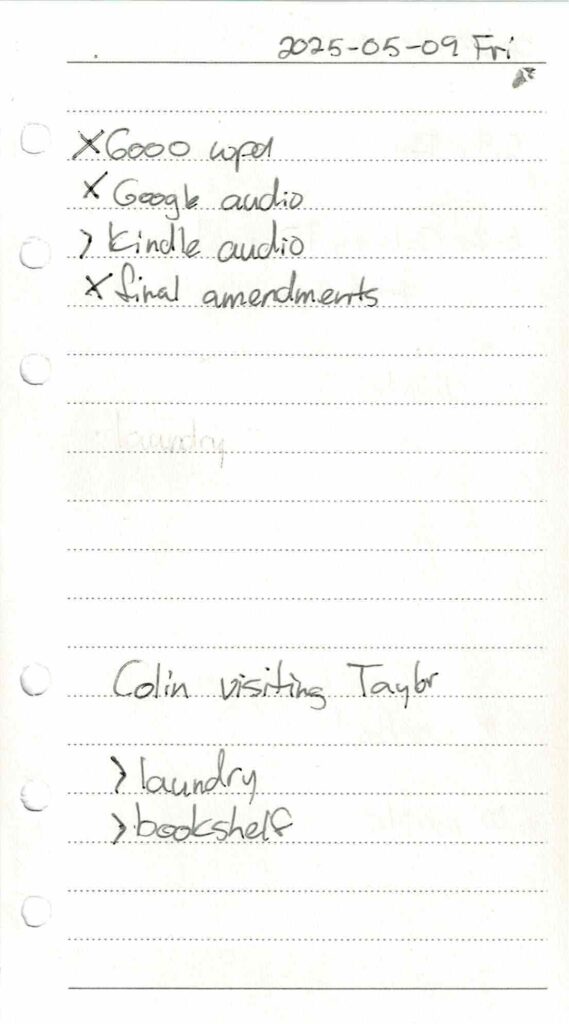 2025-05-09 Fri
× 6000 wpd
× Google audio
> Kindle audio
× final amendments
laundry
Colin visiting Taylor
> laundry
> bookshelf